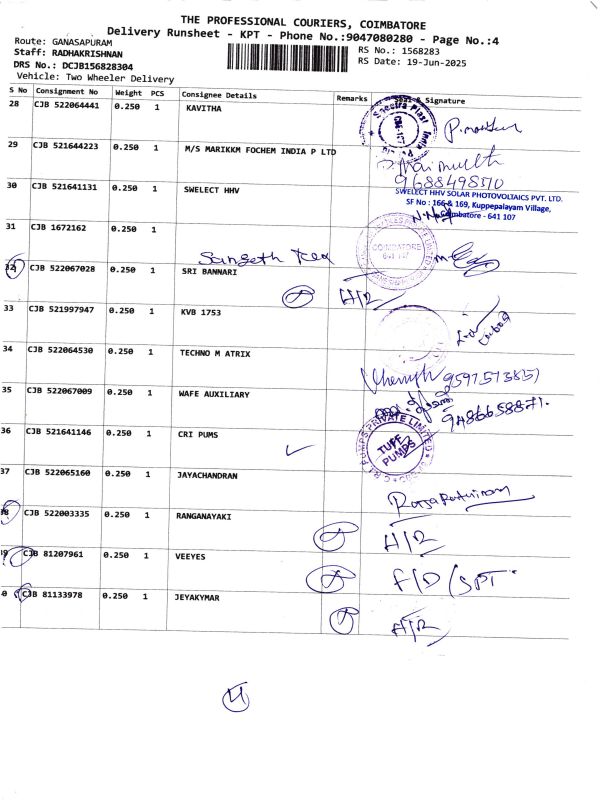 THE PROFESSIONAL COURIERS, COIMBATORE
Delivery Runsheet - KPT - Phone No.:9047080280 - Page No.:4
Route: GANASAPURAM
Staff: RADHAKRISHNAN
DRS No.: DCJB156828304
Vehicle: Two Wheeler Delivery
RS No.: 1568283
RS Date: 19-Jun-2025
S No Consignment No Weight PCS Consignee Details Remarks Seal & Signature
28 CJB 522064441 0.250 1 KAVITHA
29 CJB 521644223 0.250 1 M/S MARIKKM FOCHEM INDIA P LTD
9688498570
30 CJB 521641131 0.250 1 SWELECT HHV
SWELECT HHV SOLAR PHOTOVOLTAICS PVT. LTD.
SF No : 166 & 169, Kuppepalayam Village,
Coimbatore - 641 107
31 CJB 1672162 0.250 1
COIMBATORE
641 107
32 CJB 522067028 0.250 1 SRI BANNARI
H/R
33 CJB 521997947 0.250 1 KVB 1753
34 CJB 522064530 0.250 1 TECHNO M ATRIX
35 CJB 522067009 0.250 1 WAFE AUXILIARY
9486658871.
36 CJB 521641146 0.250 1 CRI PUMS
C.R.I. PUMPS PRIVATE LIMITED
TUFF
PUMPS
37 CJB 522065160 0.250 1 JAYACHANDRAN
38 CJB 522003335 0.250 1 RANGANAYAKI
H/R
39 CJB 81207961 0.250 1 VEEYES
F/D/SPT
0 CJB 81133978 0.250 1 JEYAKYMAR
H/R
4